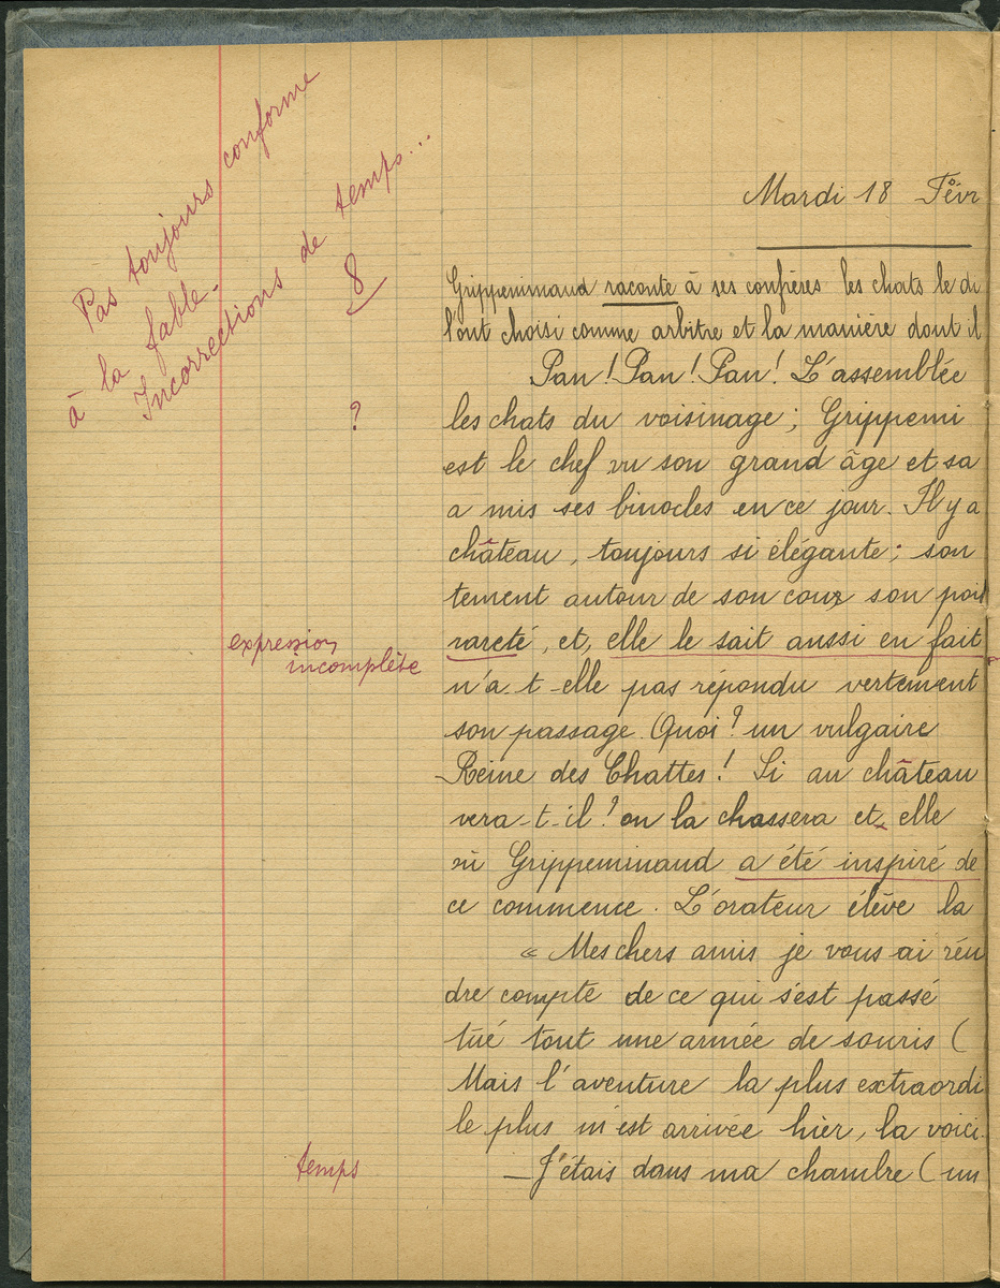 Pas toujours conforme
à la fable.
Incorrections de temps...
8
Mardi 18 Févr
Grippeminaud raconte à ses confrères les chats le du
l'ont choisi comme arbitre et la manière dont il
Pan ! Pan ! Pan ! L'assemblée
?
les chats du voisinage ; Grippemi
est le chef vu son grand âge et sa
a mis ses binocles en ce jour. Il y a
château, toujours si élégante ; son
tement autour de son cour son poil
expression
incomplète
rareté, et, elle le sait aussi en fait
n'a-t-elle pas répondu vertement
son passage. Quoi ? un vulgaire
Reine des Chattes ! Si au château
vera-t-il ? on la chassera et elle
Grippeminaud a été inspiré de
ce commence. L'orateur élève la
« Mes chers amis je vous ai réu
dre compte de ce qui s'est passé
tué tout une armée de souris (
Mais l'aventure la plus extraordi
le plus m'est arrivée hier, la voici.
temps
— J'étais dans ma chambre ( un